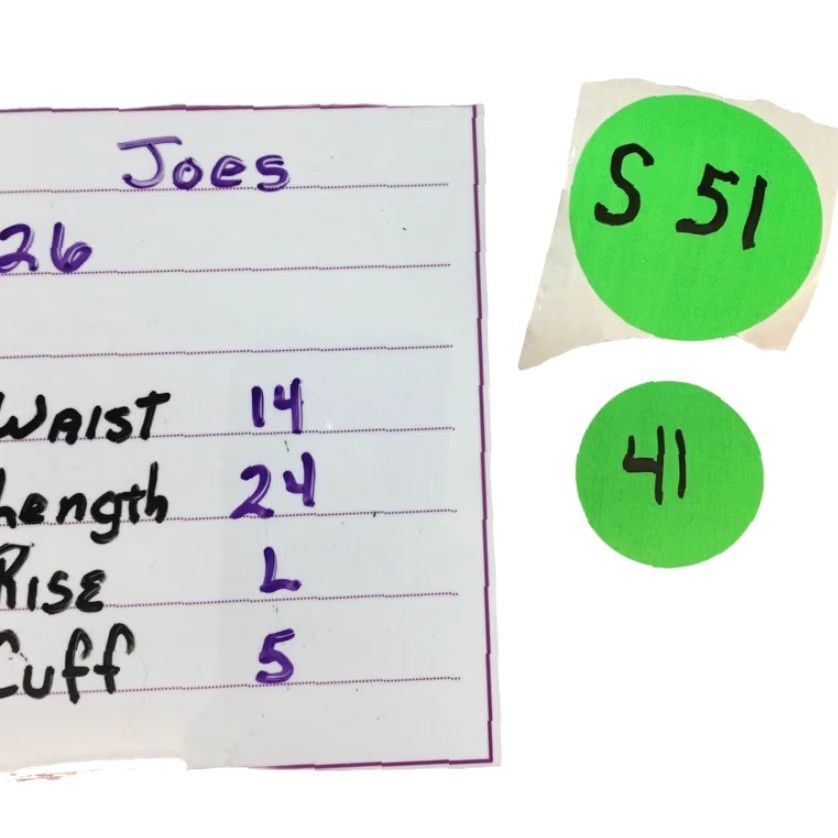 Joes
26
Waist 14
Length 24
Rise L
Cuff 5
S 51
41